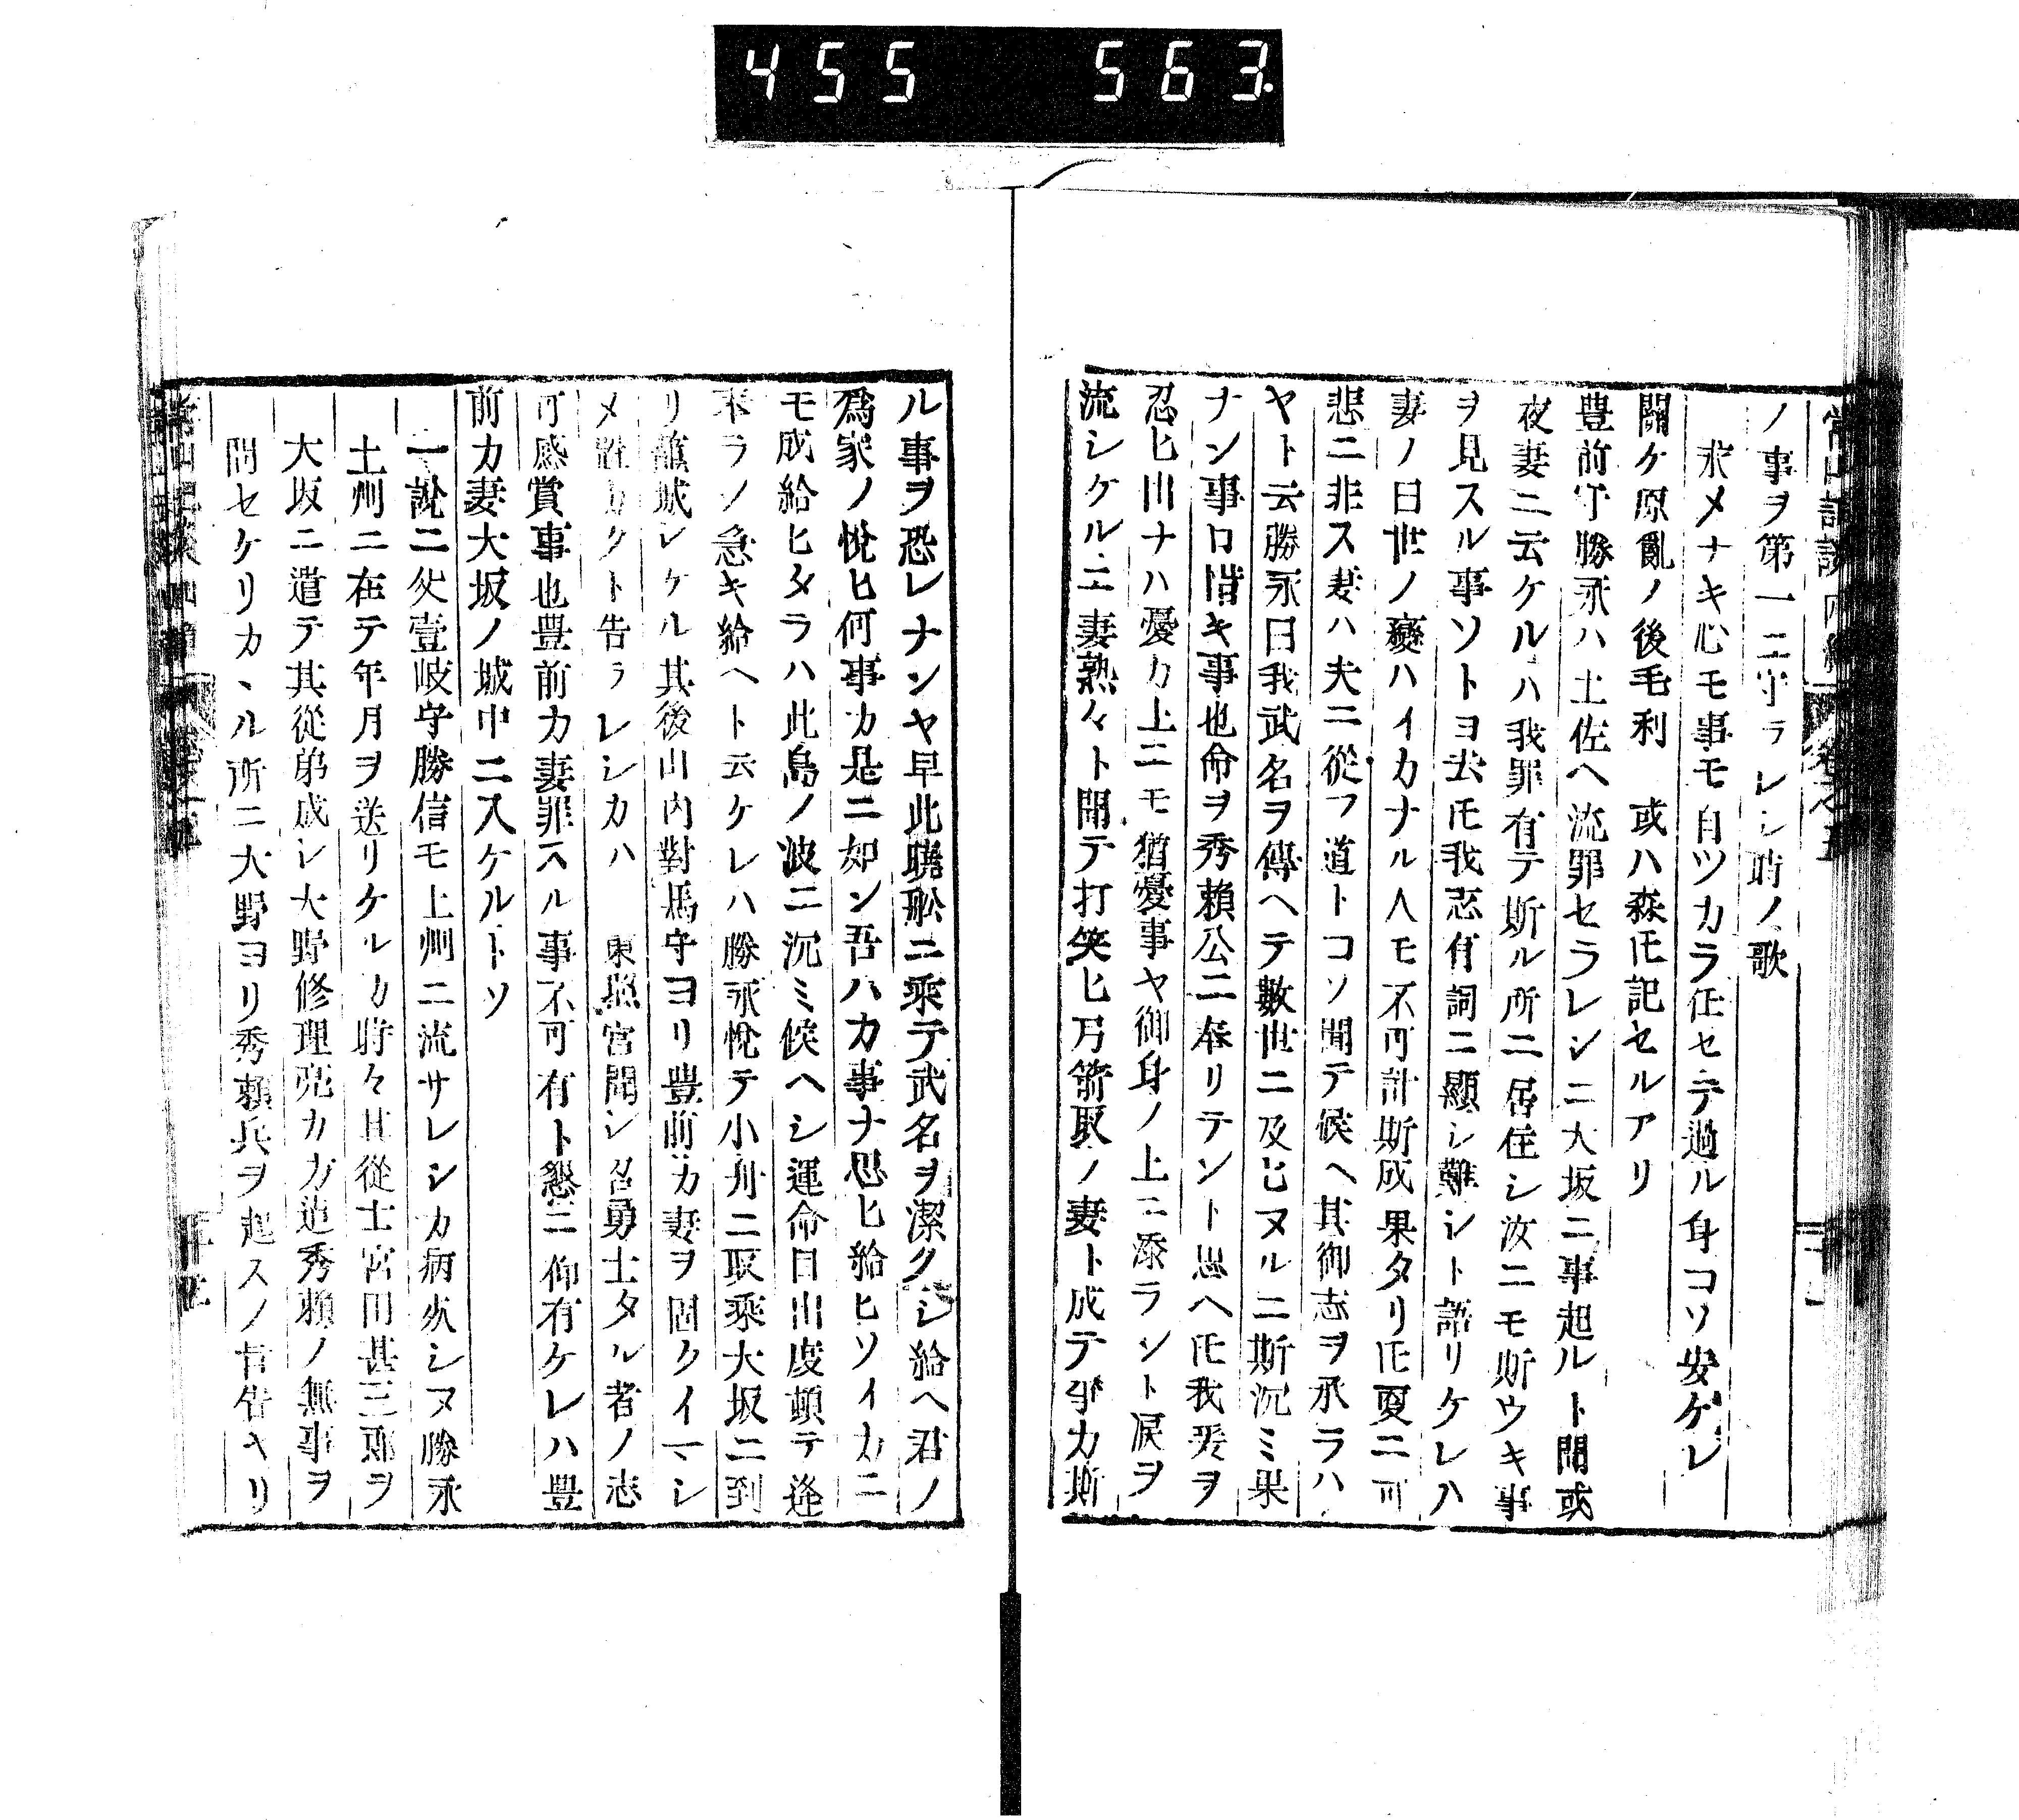 455 563
ノ事ヲ第一ニ守ラレシ時ノ歌
求メナキ心モ事モ自ツカラ任セテ過ル身コソ安ケレ
關ケ原亂ノ後毛利 或ハ森𪜈記セルアリ
豊前守勝永ハ土佐ヘ流罪セラレシニ大坂ニ事起ルト聞或
夜妻ニ云ケルハ我罪有テ斯ル所ニ居住シ汝ニモ斯ウキ事
ヲ見スル事ソトヨ去𪜈我志有詞ニ顯シ難シト語リケレハ
妻ノ曰世ノ變ハイカナル人モ不可計斯成果タリ𪜈夏ニ可
悲ニ非ス妻ハ夫ニ從フ道トコソ聞テ候ヘ其御志ヲ承ラハ
ヤト云勝永曰我武名ヲ傳ヘテ數世ニ及ヒヌルニ斯沉ミ果
ナン事口惜キ事也命ヲ秀頼公ニ奉リテント思ヘ𪜈我爰ヲ
忍ヒ出ナハ憂カ上ニモ猶憂事ヤ御身ノ上ニ添ラント涙ヲ
流シケルニ妻熟々ト聞テ打笑ヒ弓箭取ノ妻ト成テ爭カ斯
ル事ヲ恐レナンヤ早此曉舩ニ乘テ武名ヲ潔クシ給ヘ君ノ
爲家ノ悅ヒ何事カ是ニ如ン吾ハカ事ナ思ヒ給ヒソイカニ
モ成給ヒタラハ此島ノ波ニ沉ミ候ヘシ運命目出度頓テ逢
ラノ急キ給ヘト云ケレハ勝永悅テ小舟ニ取乘大坂ニ到
リ籠城シケル其後山内對馬守ヨリ豊前カ妻ヲ固クイマシ
メ置カクト告ラレシカハ 東照宮聞シ召勇士タル者ノ志
可感賞事也豊前カ妻罪スル事不可有ト懇ニ仰有ケレハ豊
前カ妻大坂ノ城中ニ入ケルトソ
一說ニ父壹岐守勝信モ土州ニ流サレシカ病死シヌ勝永
土州ニ在テ年月ヲ送リケルカ時々其從士宮田甚三郎ヲ
大坂ニ遣テ其從弟成シ大野修理亮カ方迄秀頼ノ無事ヲ
問セケリカヽル所ニ大野ヨリ秀頼兵ヲ起スノ旨告キリ